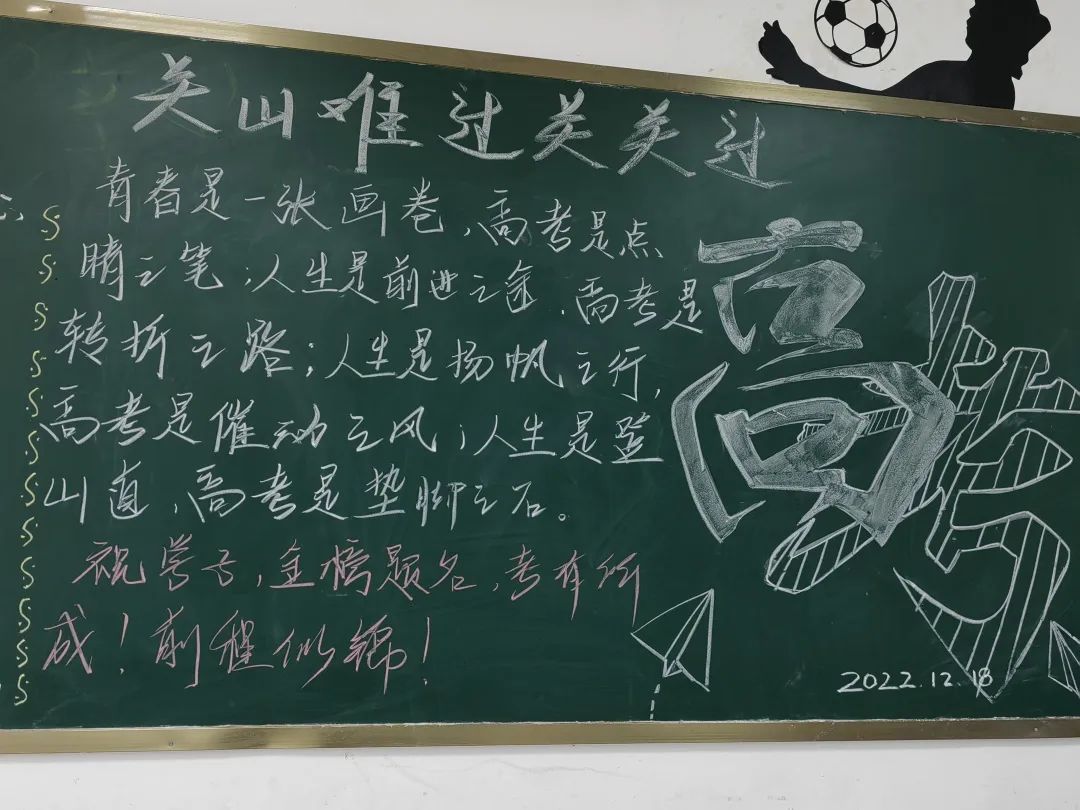 关山难过关关过
青春是一张画卷，高考是点
睛之笔；人生是前进之途，高考是
转折之路；人生是扬帆之行，
高考是催动之风；人生是登
山道，高考是垫脚之石。
祝学子，金榜题名，考有所
成！前程似锦！
高考
2022.12.18